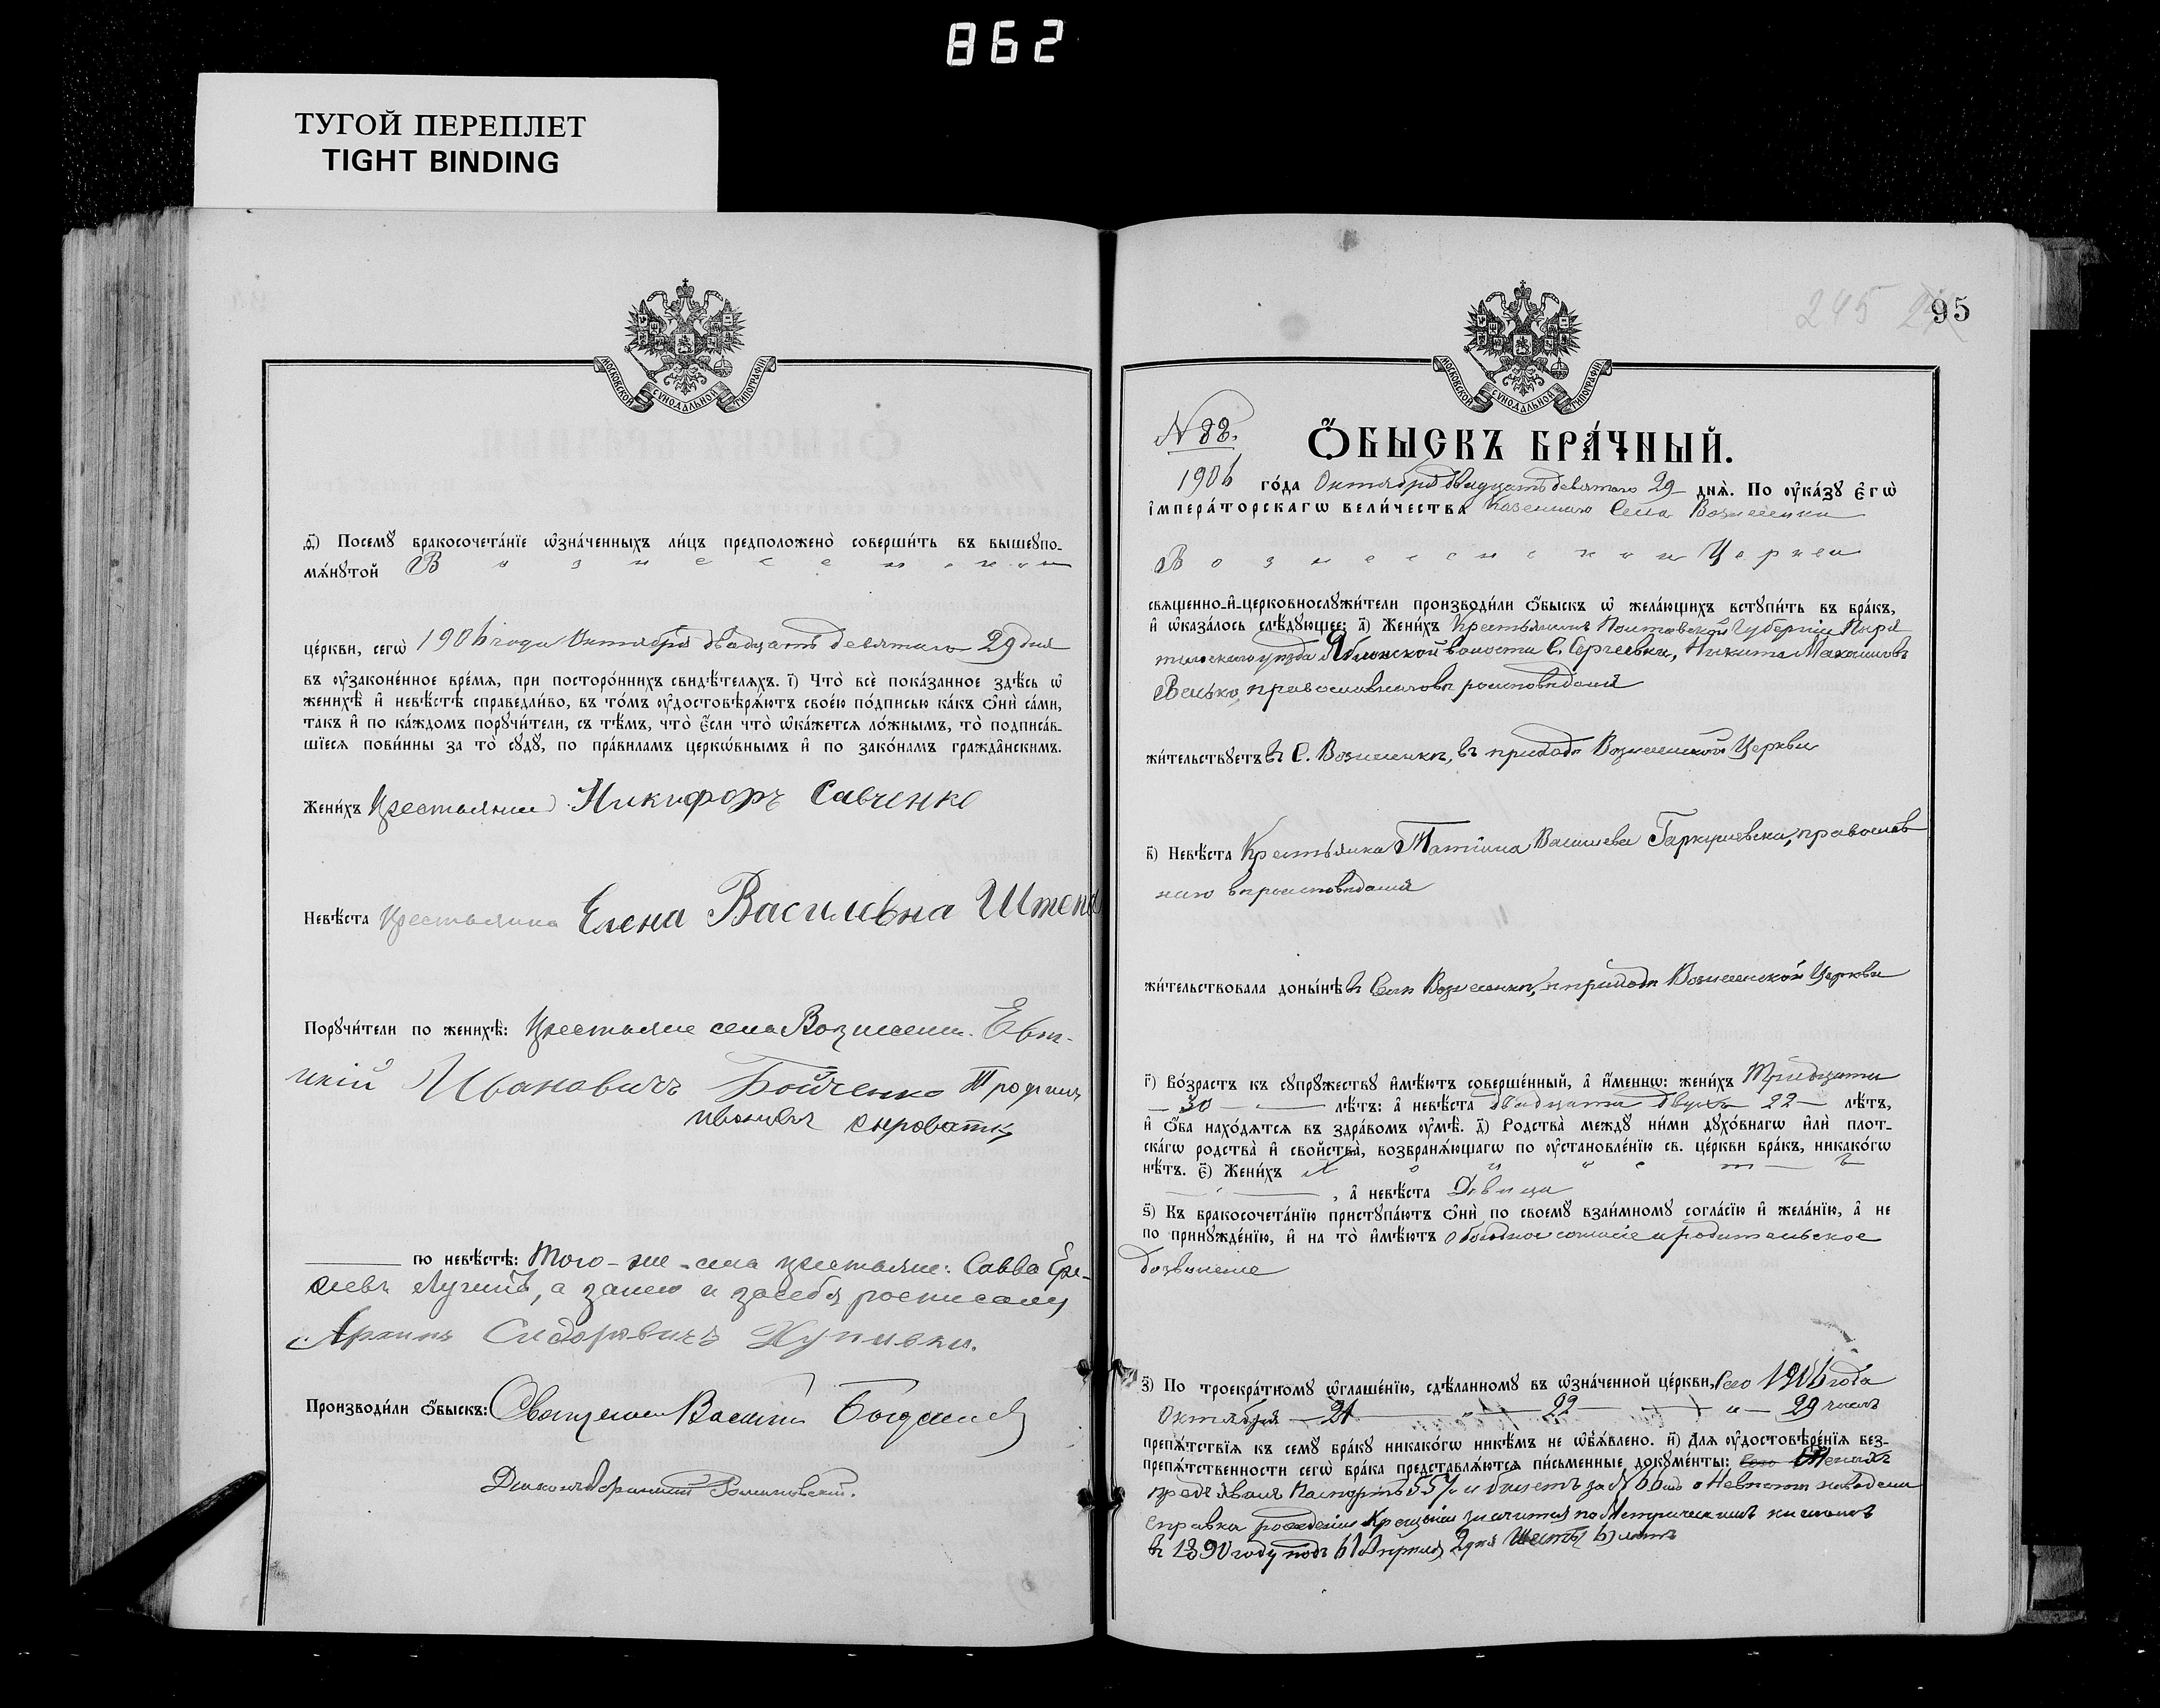 862
ТУГОЙ ПЕРЕПЛЕТ
TIGHT BINDING
МОСКОВСКОЙ СУНОДАЛЬНОЙ ТИПОГРАФІИ
д҃і) Посемꙋ̀ бракосочета́нїе ѡ҆зна́ченныхъ ли́цъ предположено̀ соверши́ть въ вышеꙋпо-
мѧ́нꙋтой Вознесенской
це́ркви, сегѡ̀ 1906 года Октября двадцать девятаго 29 дня
въ ᲂу҆зако́ненное вре́мѧ, при посторо́ннихъ свидѣ́телѧхъ. і҃) Что̀ всѐ пока́занное здѣ́сь ѡ҆
женихѣ̀ и҆ невѣ́стѣ справедли́во, въ то́мъ ᲂу҆достовѣрѧ́ютъ свое́ю по́дписью ка́къ ѻ҆нѝ са́ми,
та́къ и҆ по ка́ждомъ порꙋчи́тели, съ тѣ́мъ, что̀ є҆́сли что̀ ѡ҆ка́жетсѧ ло́жнымъ, то̀ подписа́в-
шїесѧ пови́нны за то̀ сꙋдꙋ̀, по пра́виламъ церкѡ́внымъ и҆ по зако́намъ гражда̑нскимъ.
Жени́хъ Крестьянин Никифоръ Савченко
Невѣ́ста Крестьянка Елена Василевна Штепа
Порꙋчи́тели по женихѣ̀: Крестьяне села Вознесен. Евти-
хий Ивановичъ Бойченко Трофим
ивановъ сыроватка
по невѣ́стѣ: Того-же села крестьяне: Савва
а занего и засебя росписался
Архипъ Сидоровичъ
Производи́ли ѻ҆́быскъ: Священник Василий
Диаконъ
245
95
МОСКОВСКОЙ СУНОДАЛЬНОЙ ТИПОГРАФІИ
№ 88.
Ѻ҆́БЫСКЪ БРА́ЧНЫЙ.
1906 го́да Октября двадцать девятаго 29 днѧ̀. По ᲂу҆ка́зꙋ є҆гѡ̀
і҆мпера́торскагѡ вели́чества Казеннаго Села Вознесенки
Вознесенской Церкви
свѧщенно-и҆-церковнослꙋжи́тели производи́ли ѻ҆́быскъ ѡ҆ жела́ющихъ встꙋпи́ть въ бра́къ,
и҆ ѡ҆каза́лось слѣ́дꙋющее: а҃) Жени́хъ Крестьянинъ Полтавской Губерніи Пиря
тинскаго уезда Яблонской волости С. Сергеевки, Никита
православнаго вероисповедания
жи́тельствꙋетъ в С. Вознесенке, въ приходе Вознесенской Церкви
в҃) Невѣ́ста Крестьянка Татиана Васильева православ
наго вероисповедания
жи́тельствовала доны́нѣ в Селе Вознесенке, в приходе Вознесенской Церкви
г҃) Во́зрастъ къ сꙋпрꙋ́жествꙋ и҆мѣ́ютъ соверше́нный, а҆ и҆́меннѡ: жени́хъ Тридцати
30 лѣ́тъ: а҆ невѣ́ста двадцати двухъ 22 лѣ́тъ,
и҆ ѻ҆́ба нахо́дѧтсѧ въ здра́вомъ ᲂу҆мѣ̀. д҃) Родства̀ междꙋ ни́ми дꙋхо́внагѡ и҆лѝ плот-
ска́гѡ родства̀ и҆ свойства̀, возбранѧ́ющагѡ по ᲂу҆становле́нїю св. це́ркви бра́къ, никако́гѡ
нѣ́тъ. є҃) Жени́хъ Холостъ
, а҆ невѣ́ста Девица
ѕ҃) Къ бракосочета́нїю пристꙋпа́ютъ ѻ҆нѝ по своемꙋ̀ взаи́мномꙋ согла́сїю и҆ жела́нїю, а҆ не
по принꙋжде́нїю, и҆ на то̀ и҆мѣ́ютъ обоюдное согласіе и родительское
дозволеніе
з҃) По троекра́тномꙋ ѡ҆глаше́нїю, сдѣ́ланномꙋ въ ѡ҆зна́ченной це́ркви, Сего 1906 года
Октября 21 22 и 29 чиселъ
препѧ́тствїѧ къ семꙋ̀ бра́кꙋ никако́гѡ никѣ́мъ не ѡ҆б̾ѧ́влено. и҃) Длѧ ᲂу҆достовѣре́нїѧ без-
препѧ́тственности сегѡ̀ бра́ка представлѧ́ютсѧ пи́сьменные докꙋме́нты: Женихъ
предъявилъ Паспортъ и билетъ за о Невесте наведена
справка рождение Крещение значится по Метрическимъ книгамъ
в 18 году подъ 61 Апреля 2 дня